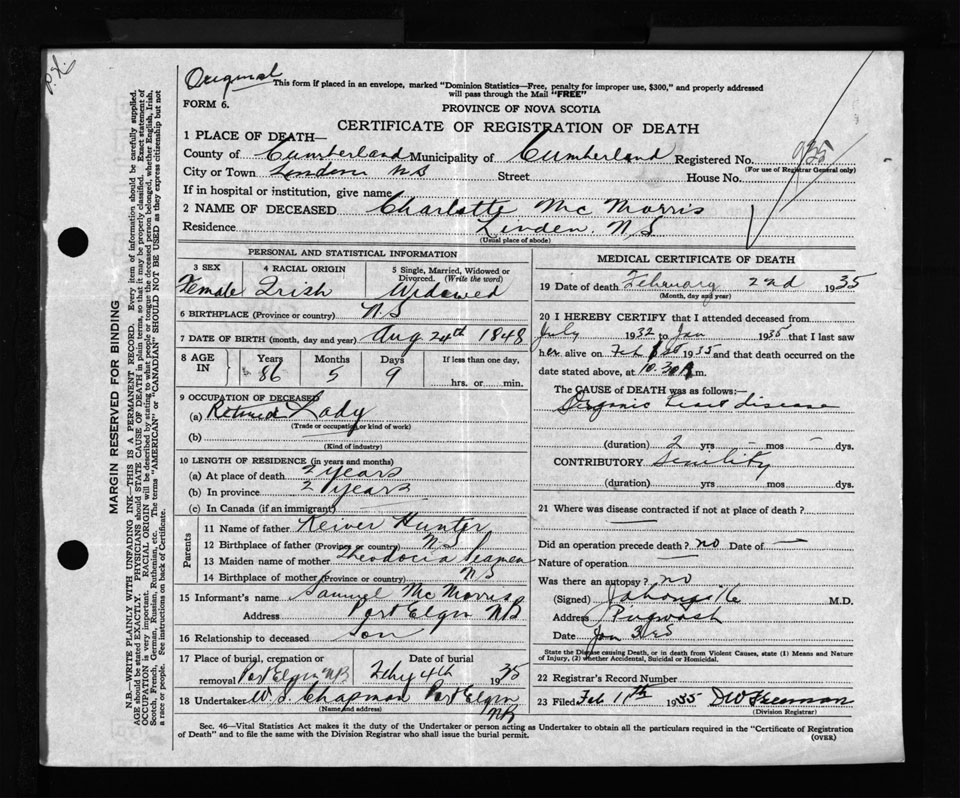 Original
This form if placed in an envelope, marked "Dominion Statistics—Free, penalty for improper use, $300," and properly addressed
will pass through the Mail "FREE"
FORM 6.
PROVINCE OF NOVA SCOTIA
CERTIFICATE OF REGISTRATION OF DEATH
1 PLACE OF DEATH—
County of Cumberland Municipality of Cumberland Registered No. 935
(For use of Registrar General only)
City or Town Linden NS Street House No.
If in hospital or institution, give name
2 NAME OF DECEASED Charlotte McMorris
Residence Linden N.S
(Usual place of abode)
PERSONAL AND STATISTICAL INFORMATION
3 SEX 4 RACIAL ORIGIN 5 Single, Married, Widowed or Divorced. (Write the word)
Female Irish Widowed
6 BIRTHPLACE (Province or country) N.S
7 DATE OF BIRTH (month, day and year) Aug 24th 1848
8 AGE IN Years Months Days If less than one day,
86 5 9 hrs. or min.
9 OCCUPATION OF DECEASED
(a) Retired Lady
(Trade or occupation or kind of work)
(b)
(Kind of industry)
10 LENGTH OF RESIDENCE (in years and months)
(a) At place of death 2 years
(b) In province 2 years
(c) In Canada (if an immigrant)
Parents
11 Name of father Hunter
12 Birthplace of father (Province or country) N.S
13 Maiden name of mother Theodocia Seaman
14 Birthplace of mother (Province or country) N.S
15 Informant's name Samuel McMorris
Address Port Elgin NB
16 Relationship to deceased Son
17 Place of burial, cremation or removal Port Elgin NB Date of burial Feby 4th 1935
18 Undertaker W. S. Chapman Port Elgin NB
(Name and address)
MEDICAL CERTIFICATE OF DEATH
19 Date of death February 2nd 1935
(Month, day and year)
20 I HEREBY CERTIFY that I attended deceased from
July 1932 to Jan 1935 that I last saw
her alive on Feb 1935 and that death occurred on the
date stated above, at 10.30 m.
The CAUSE of DEATH was as follows:
Organic heart disease
(duration) 2 yrs – mos – dys.
CONTRIBUTORY Senility
(duration) yrs mos dys.
21 Where was disease contracted if not at place of death?
Did an operation precede death? no Date of —
Nature of operation
Was there an autopsy? no
(Signed) M.D.
Address Pugwash
Date
State the Disease causing Death, or in death from Violent Causes, state (1) Means and Nature
of Injury, (2) whether Accidental, Suicidal or Homicidal.
22 Registrar's Record Number
23 Filed Feb 11th 1935 DW Freeman
(Division Registrar)
Sec. 46—Vital Statistics Act makes it the duty of the Undertaker or person acting as Undertaker to obtain all the particulars required in the "Certificate of Registration
of Death" and to file the same with the Division Registrar who shall issue the burial permit.
(OVER)
MARGIN RESERVED FOR BINDING
N.B.—WRITE PLAINLY WITH UNFADING INK—THIS IS A PERMANENT RECORD. Every item of information should be carefully supplied.
AGE should be stated EXACTLY. PHYSICIANS should STATE CAUSE OF DEATH in plain terms, so that it may be properly classified. Exact statement of
OCCUPATION is very important. RACIAL ORIGIN will be described by stating to what people or tongue the deceased person belonged, whether English, Irish,
Scotch, French, German, Russian, Ruthenian, etc. The terms "AMERICAN" or "CANADIAN" SHOULD NOT BE USED as they express citizenship but not
a race or people. See instructions on back of Certificate.